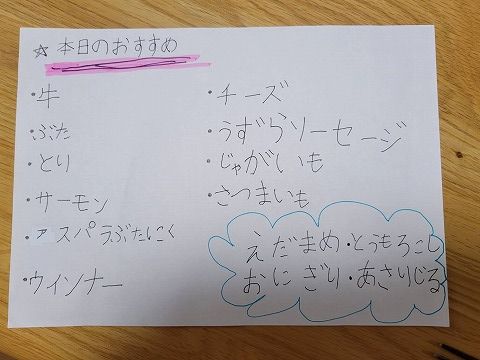 ☆ 本日のおすすめ
・牛
・ぶた
・とり
・サーモン
・アスパラぶたにく
・ウインナー
・チーズ
・うずらソーセージ
・じゃがいも
・さつまいも
えだまめ・とうもろこし
おにぎり・あさりじる